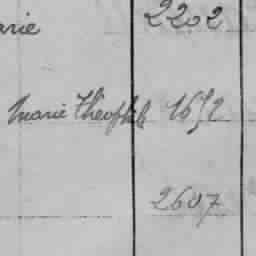 arie 2202
Marie Théophile 1652
2607